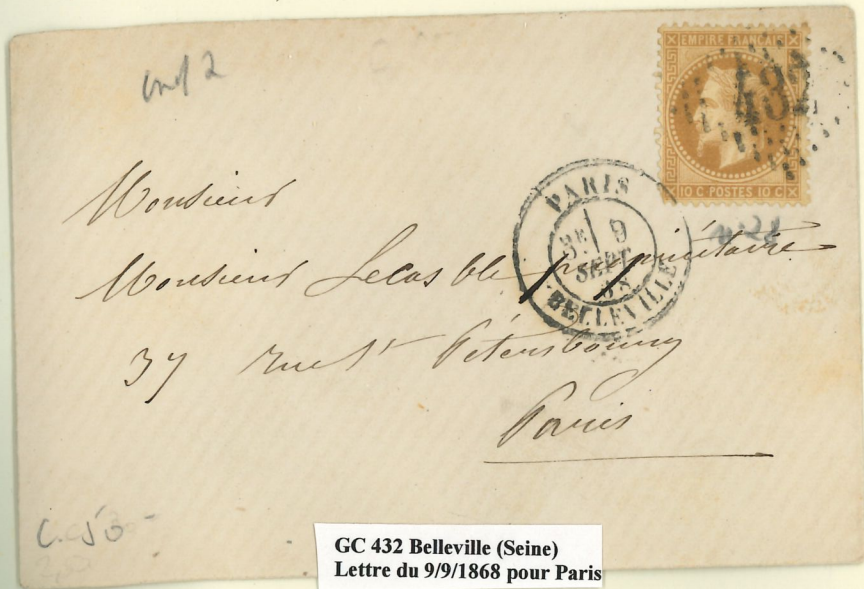 ind 2
EMPIRE FRANÇAIS
432
10 C. POSTES 10 C
PARIS
9
SEPT
68
BELLEVILLE
n°28
Monsieur
Monsieur Lecas ble propriétaire
37 rue St Pétersbourg
Paris
C. 50-
GC 432 Belleville (Seine)
Lettre du 9/9/1868 pour Paris